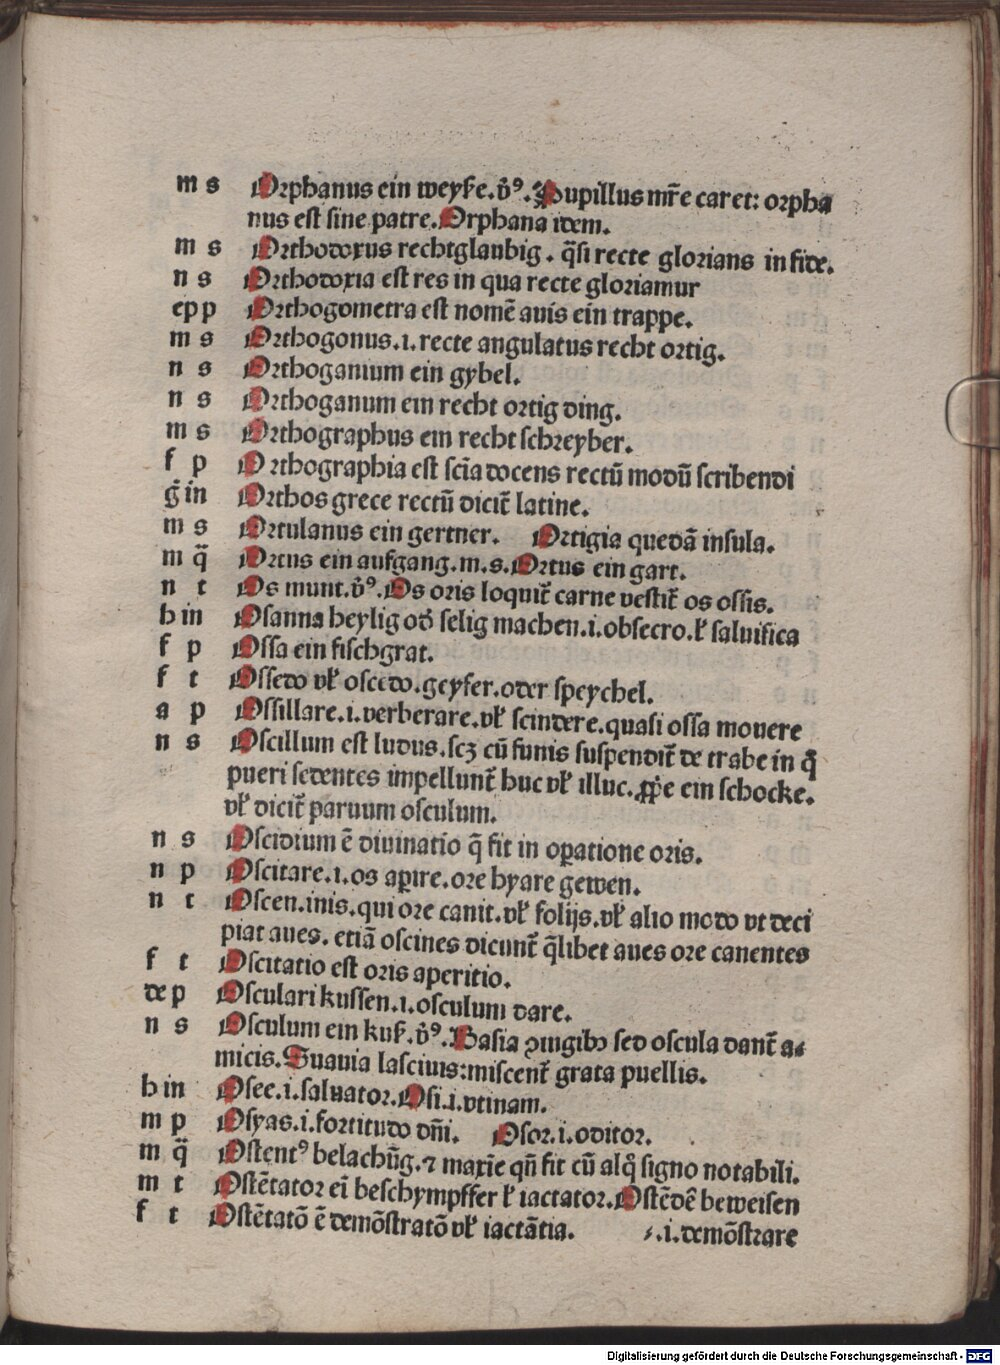 m s Orphanus ein weyse. v̉ꝰ. Pupillus mr̄e caret: orpha
nus est sine patre. Orphana idem.
m s Orthodoxus rechtglaubig. q̄si recte glorians in fide.
n s Orthodoxia est res in qua recte gloriamur
epp Orthogometra est nomē auis ein trappe.
m s Orthogonus .i. recte angulatus recht ortig.
n s Orthoganium ein gybel.
n s Orthoganum ein recht ortig ding.
m s Orthographus ein recht schreyber.
f p Orthographia est sciā docens rectū modū scribendi
g̉ in Orthos grece rectū dicit̄ latine.
m s Ortulanus ein gertner. Ortigia quedā insula.
m q̄ Ortus ein aufgang. m. s. Ortus ein gart.
n t Os munt. v̉ꝰ. Os oris loquit̄ carne vestit̄ os ossis.
h in Osanna heylig od̉ selig machen .i. obsecro. ł saluifica
f p Ossa ein fischgrat.
f t Ossedo vł oscedo. geyfer. oder speychel.
a p Ossillare .i. verberare. vł scindere. quasi ossa mouere
n s Oscillum est ludus. scꝫ cū funis suspendit̄ de trabe in q̄
pueri sedentes impellunt̄ huc vł illuc. ꝓpe ein schocke.
vł dicit̄ paruum osculum.
n s Oscidium ē diuinatio q̄ fit in oꝑatione oris.
n p Oscitare .i. os aꝑire. ore hyare gewen.
n t Oscen. inis. qui ore canit. vł folijs. vł alio modo vt deci
piat aues. etiā oscines dicunt̄ q̄libet aues ore canentes
f t Oscitatio est oris aperitio.
de p Osculari kussen .i. osculum dare.
n s Osculum ein kuß. v̉ꝰ. Basia ꝯiugibꝫ sed oscula dant̄ a⸗
micis. Suauia lasciuis: miscent̄ grata puellis.
h in Osee .i. saluator. Osi .i. vtinam.
m p Osyas .i. fortitudo dn̄i. Osor .i. oditor.
m q̄ Ostentꝰ belachūg. ⁊ maxīe qn̄ fit cū alq̊ signo notabili.
m t Ostētator ei̅ beschympffer ł iactator. Ostēdē beweisen
f t Ostētatō ē demōstratō vł iactātia. ⸗ .i. demōstrare
Digitalisierung gefördert durch die Deutsche Forschungsgemeinschaft - DFG